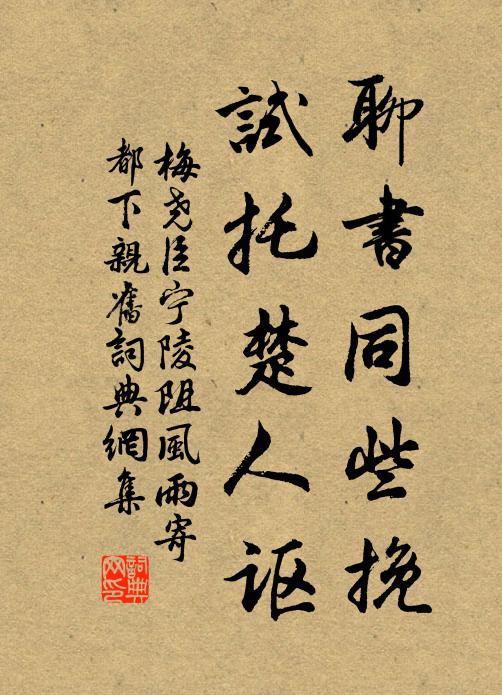 聊書同些挽
試托楚人讴
梅尧臣宁陵阻風雨寄
都下親舊詞典網集
詞典
网印